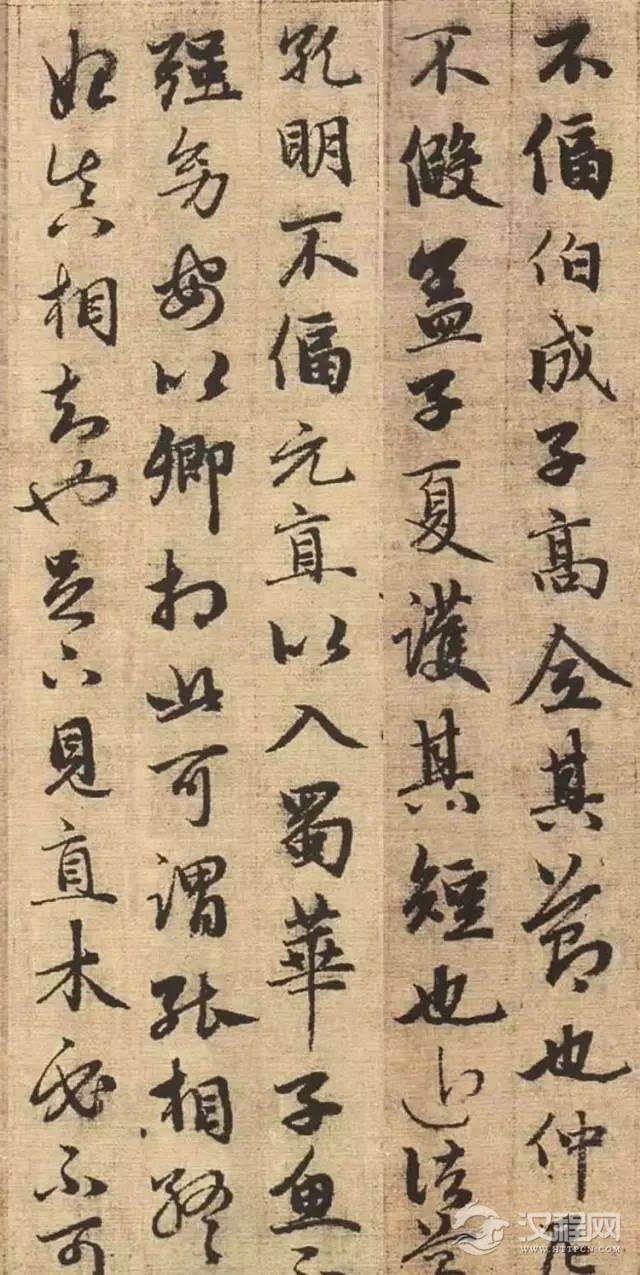 不偪伯成子高全其節也仲尼
不假蓋子夏護其短也近諸葛
孔明不偪元直以入蜀華子魚不
强幼安以卿相此可謂能相終
始真相知也足下見直木必不可
汉程网
WWW.HTTPCN.COM